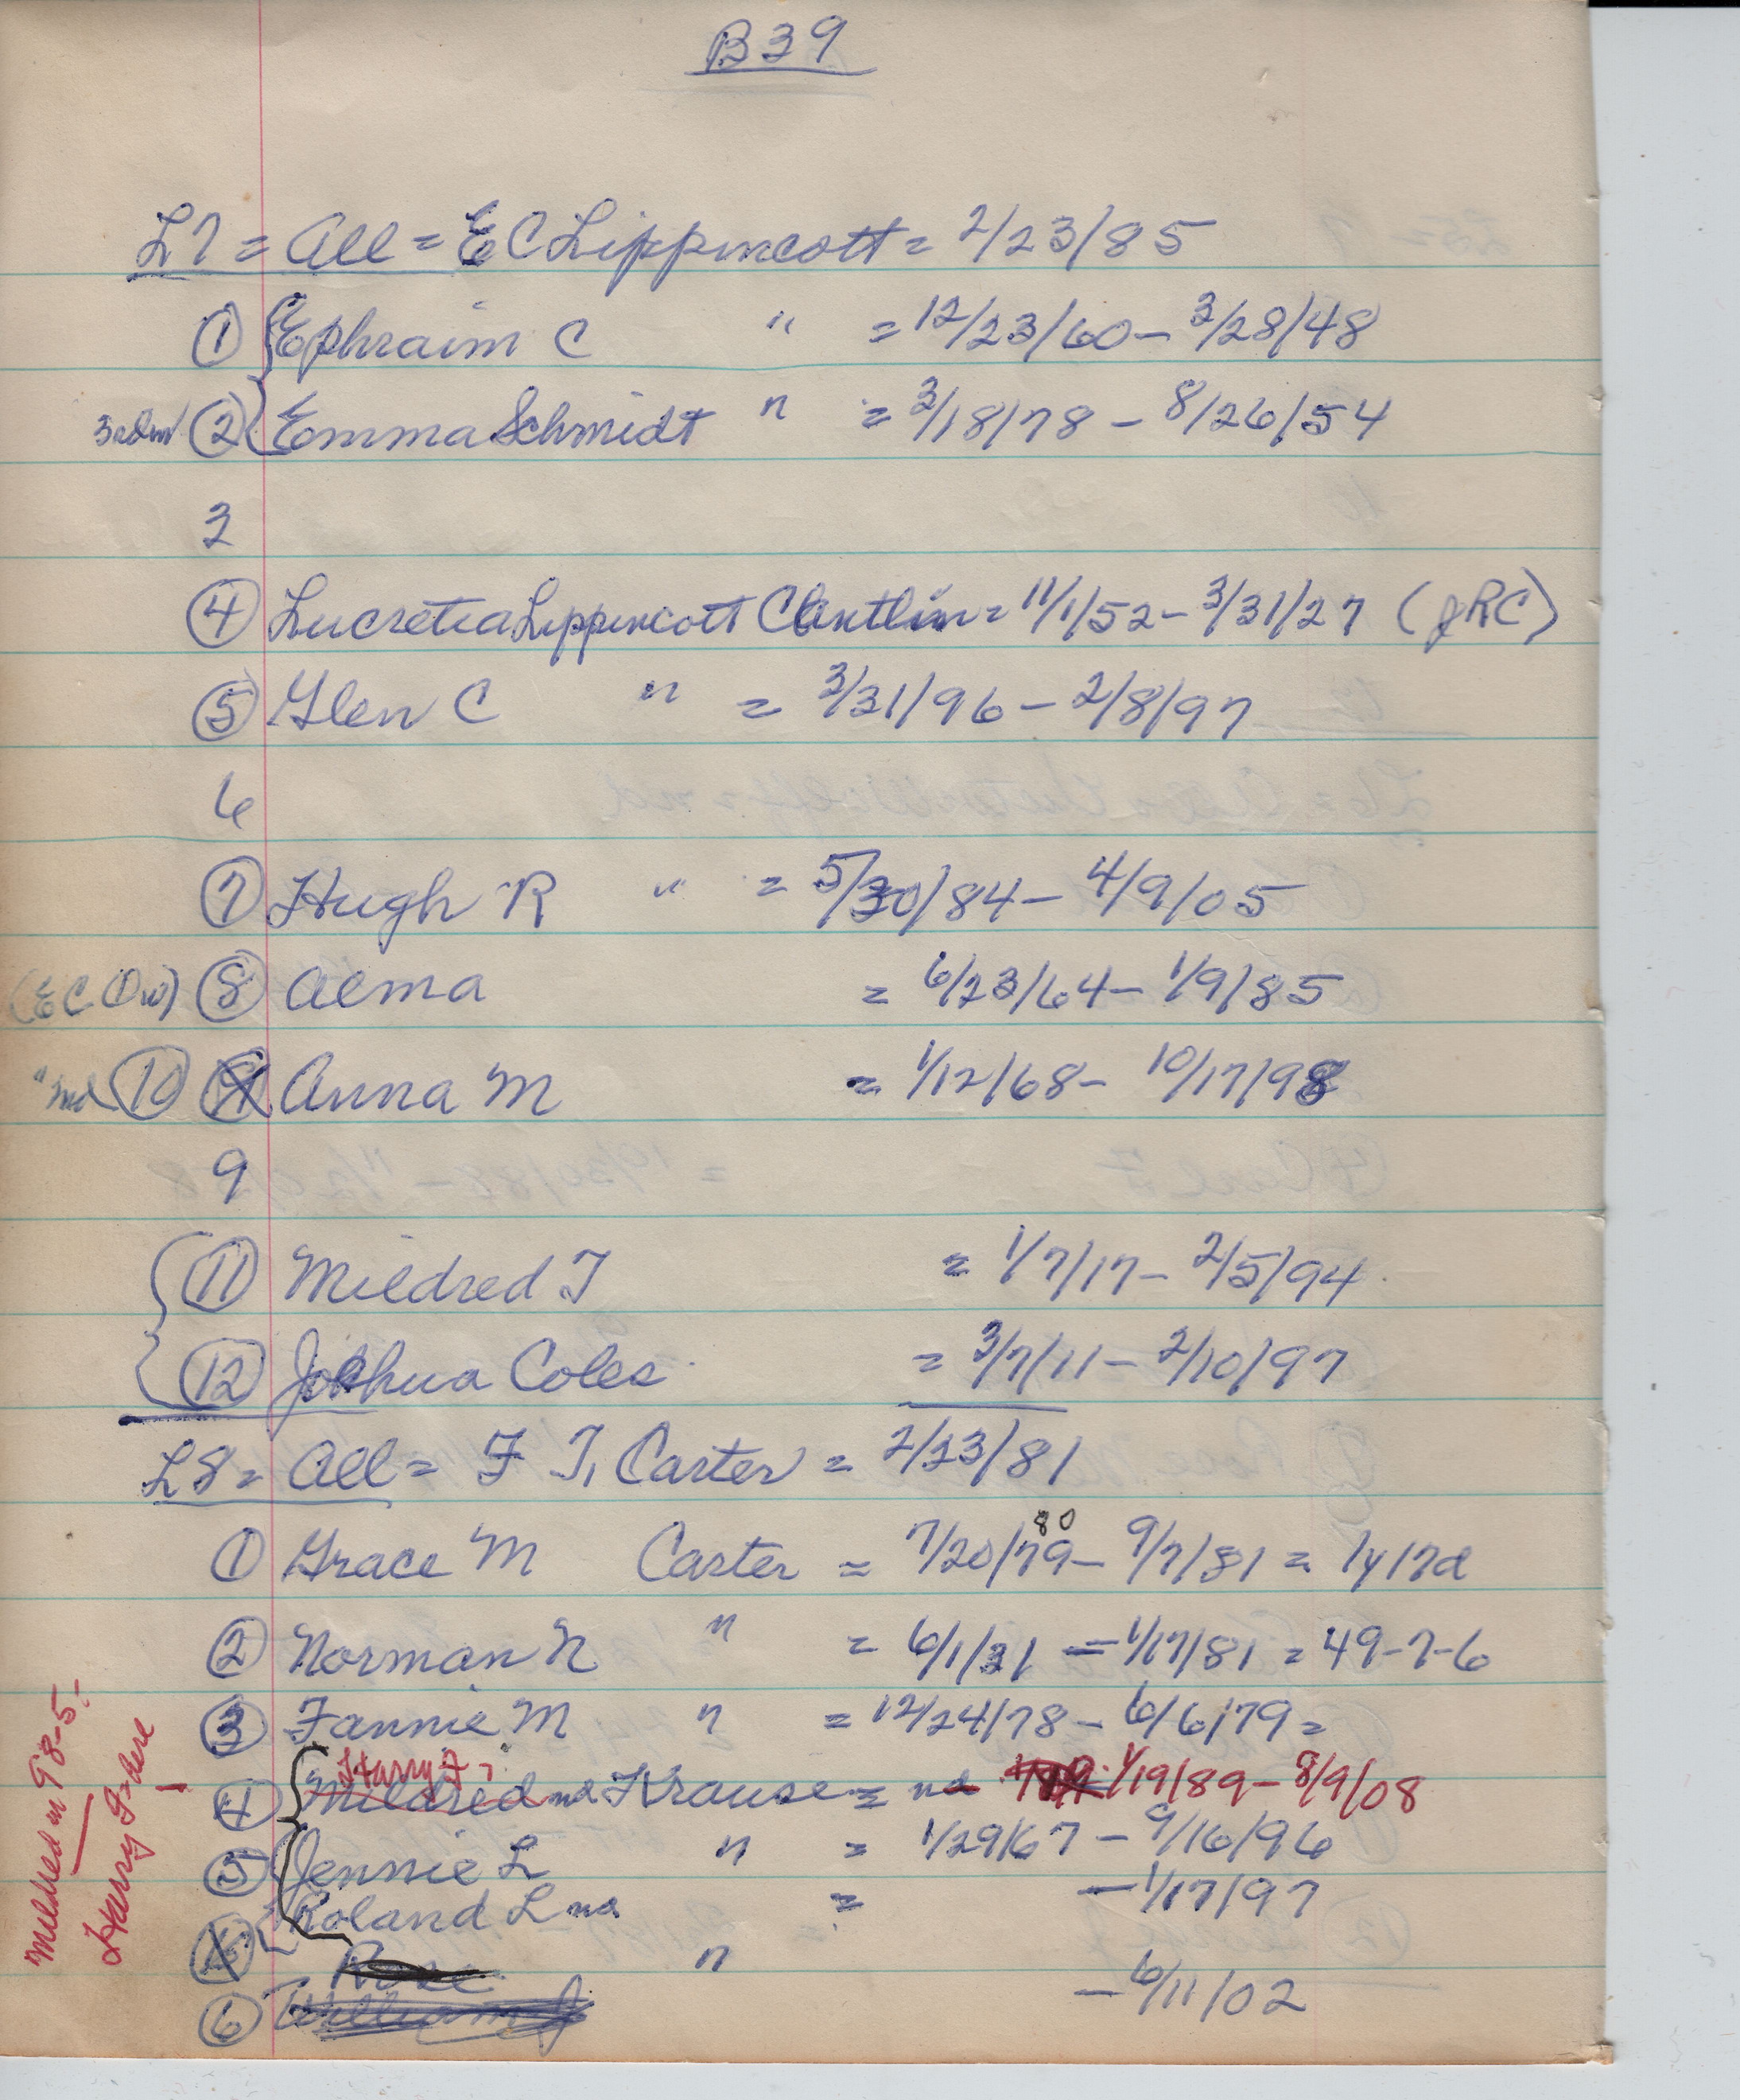 B39
L7 = All = E C Lippincott = 2/23/85
① Ephraim C " = 12/23/60 - 3/28/48
3rd w ② Emma Schmidt " = 3/18/78 - 8/26/54
3
④ Lucretia Lippincott Cantlin = 11/1/52 - 3/31/27 (RC)
⑤ Glen C " = 3/31/96 - 2/8/97
6
⑦ Hugh R " = 5/30/84 - 4/9/05
(EC ① w) ⑧ Alma = 6/23/64 - 1/9/85
" 2nd ⑩ Anna M = 1/12/68 - 10/17/98
9
⑪ Mildred T = 1/7/17 - 2/5/94
⑫ Joshua Coles = 3/7/11 - 2/10/97
L8 = All = F T, Carter = 2/23/81
80
① Grace M Carter = 7/20/79 - 9/7/81 = 1y 17d
② Norman N " = 6/1/31 - 1/17/81 = 49-7-6
③ Fannie M " = 12/24/78 - 6/6/79 =
Harry F,
④ Mildred nd Krause = nd 1/19/89 - 8/9/08
⑤ Jennie L " = 1/29/67 - 9/16/96
Roland L nd = - 1/17/97
Rose "
⑥ William J - 6/11/02
Mildred in 98-5-
Harry F here